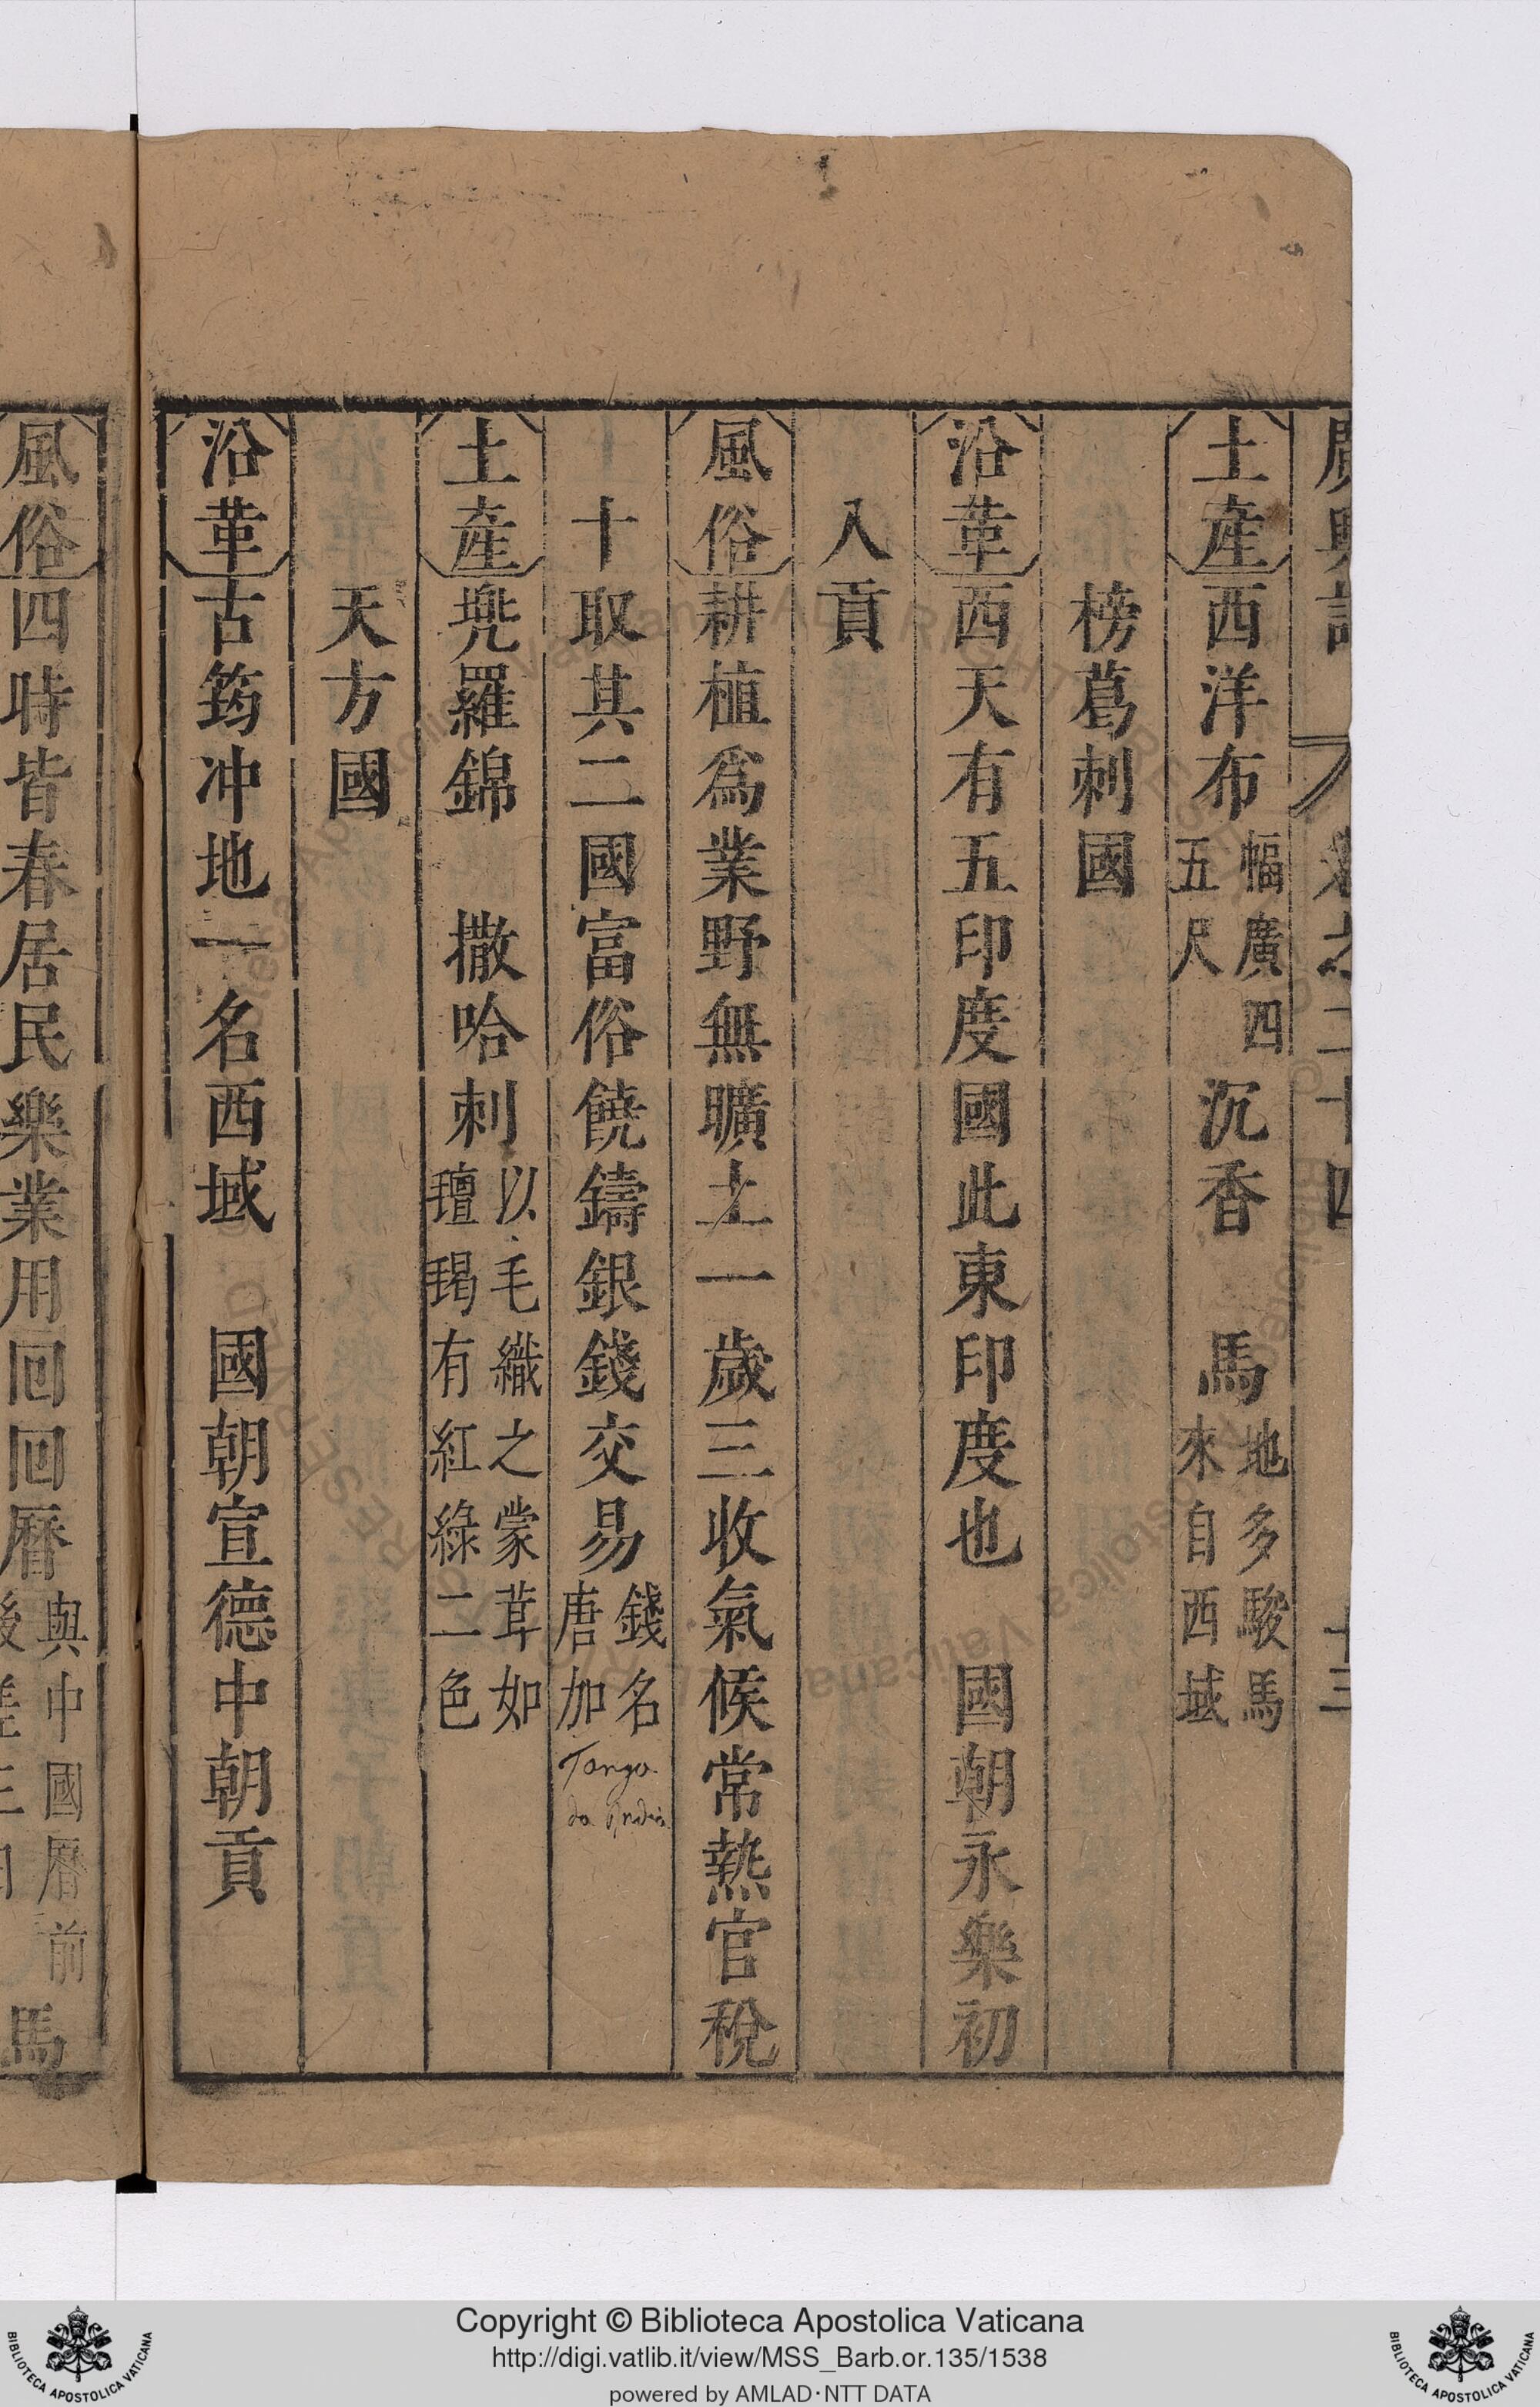 廣輿記 卷之二十四 十三
土產西洋布幅廣四五尺 沉香 馬地多駿馬來自西域
榜葛刺國
沿革西天有五印度國此東印度也 國朝永樂初
入貢
風俗耕植爲業野無曠土一歲三收氣候常熱官稅
十取其二國富俗饒鑄銀錢交易錢名唐加
Tanga
da India
土產兠羅錦 撒哈刺以毛織之蒙茸如氊毼有紅綠二色
天方國
沿革古筠冲地一名西域 國朝宣德中朝貢
風俗四時皆春居民樂業用回回曆與中國曆前後差三日 馬
Copyright © Biblioteca Apostolica Vaticana
http://digi.vatlib.it/view/MSS_Barb.or.135/1538
powered by AMLAD·NTT DATA
BIBLIOTECA APOSTOLICA VATICANA
BIBLIOTECA APOSTOLICA VATICANA